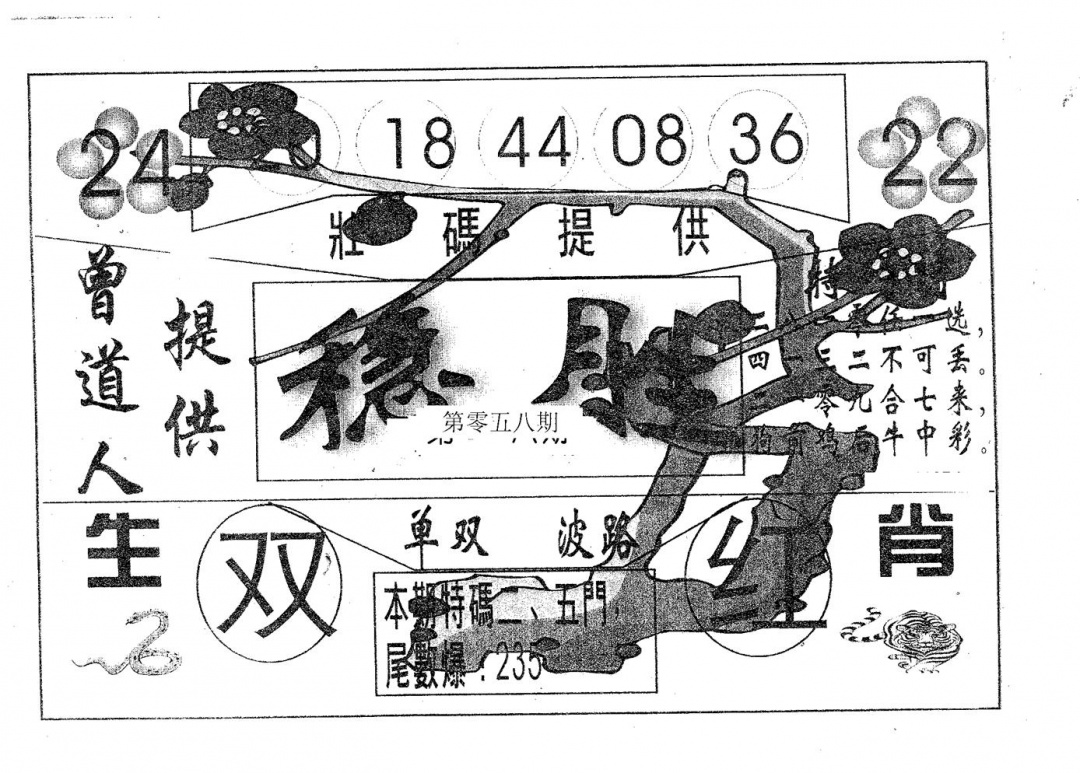 24
18 44 08 36
22
壯碼提供
曾道人
提供
稳胜
第零五八期
特
选，
四一三二不可丢。
零九合七来，
狗前鸡后牛中彩。
生
肖
双
红
单双 波路
本期特碼二、五門，
尾數爆：235